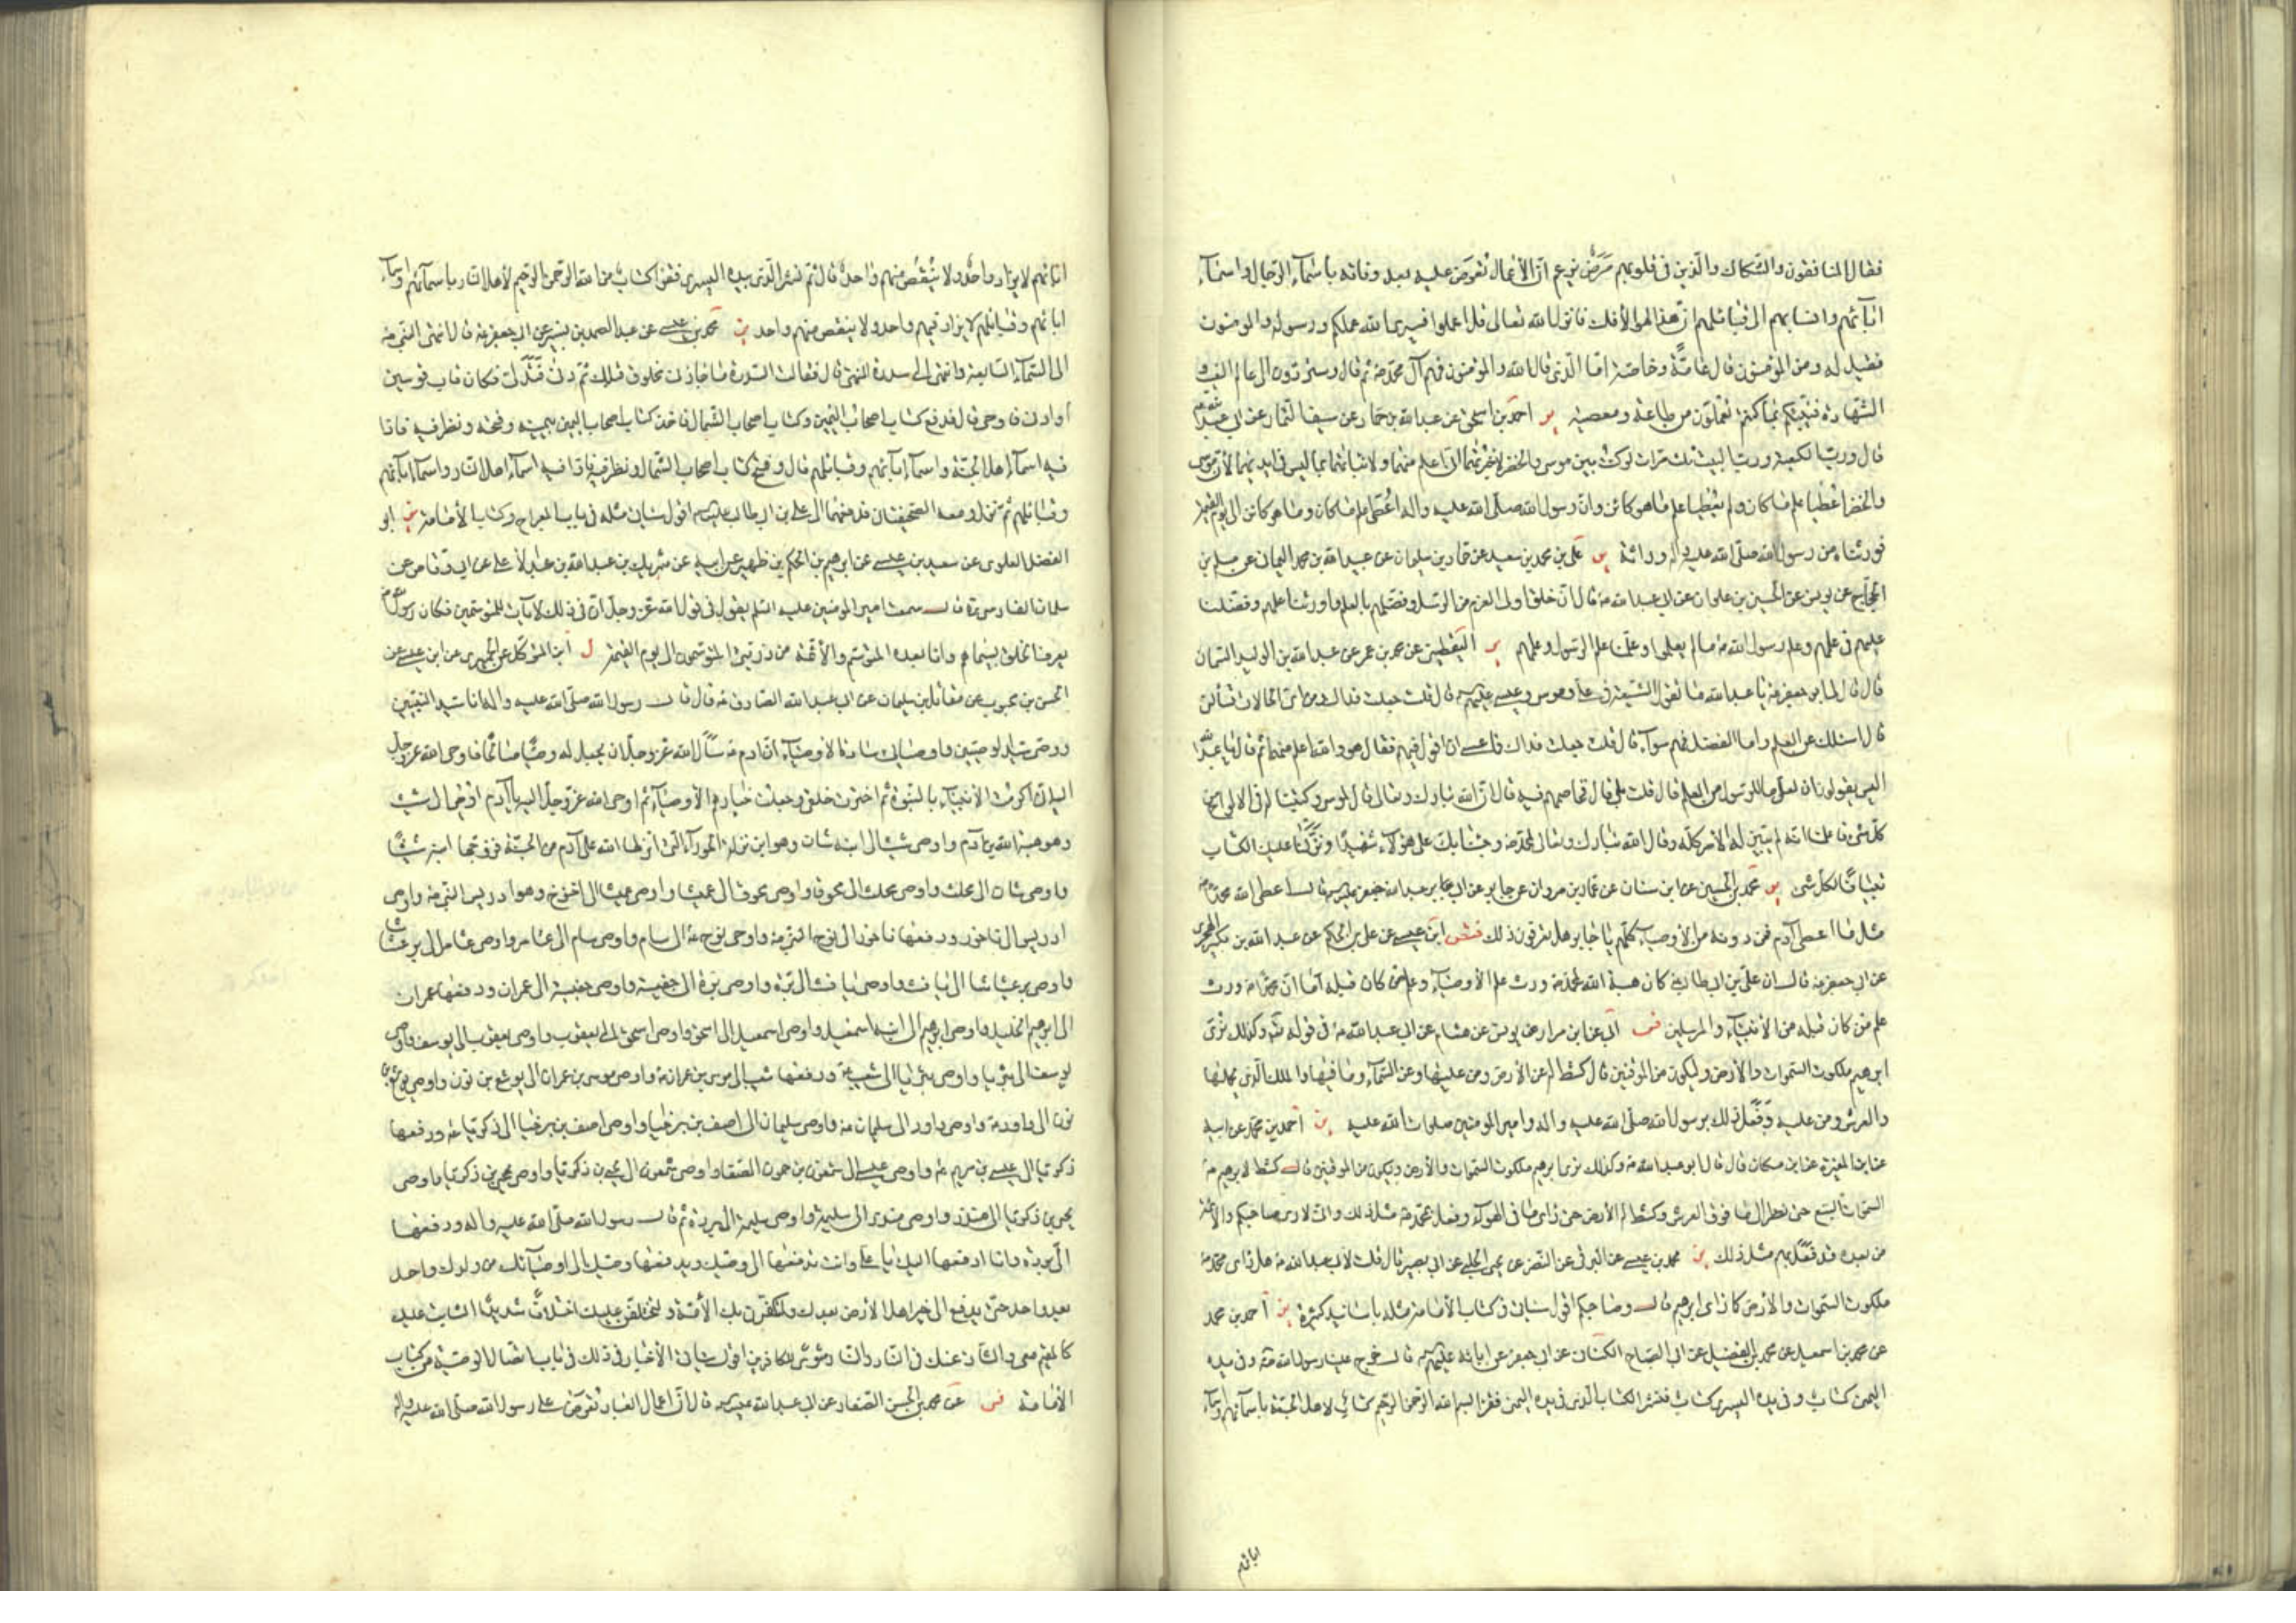 فقال المنافقون والشكاك والذين فى قلوبهم مرض نزعم ان الأعمال تعرض عليه بعد وفاته باسماء الرجال واسماء
ابائهم وانسابهم الى قبائلهم ان هذا لهو الأفك فانزل الله تعالى قل اعملوا فسيرى الله عملكم ورسوله والمومنون
فقيل له ومن المؤمنون قال عامة وخاصة اما الذين قال الله والمؤمنون فهم آل محمد ثم قال وستردون الى عالم الغيب و
الشهادة فينبئكم بما كنتم تعملون من طاعة ومعصية ير احمد بن اسحق عن عبد الله بن حماد عن سيف التمار عن ابي عبد الله
قال ورب الكعبة ورب البيت ثلث مرات لو كنت بين موسى والخضر لاخبرتهما انى اعلم منهما ولانبأتهما بما ليس فى ايديهما لأن موسى
والخضر اعطيا علم ما كان ولم يعطيا علم ما هو كائن وان رسول الله صلى الله عليه واله اعطى علم ما كان وما هو كائن الى يوم القيمة
فورثناه من رسول الله صلى الله عليه وآله وراثة ير على بن محمد بن سعيد عن حمدان بن سليمان عن عبيد الله بن محمد اليمانى عن مسلم بن
الحجاج عن يونس عن الحسين بن علوان عن ابى عبد الله قال ان خلق اولى العزم من الرسل وفضلهم بالعلم واورثنا علمهم وفضلنا
عليهم فى علمهم وعلم رسول الله ما لم يعلموا وعلمنا علم الرسول وعلمهم ير اليقطينى عن محمد بن عمر عن عبد الله بن الوليد السمان
قال قال لى ابو جعفر يا عبد الله ما تقول الشيعة فى على وموسى وعيسى قال قلت جعلت فداك ومن اى الحالات تسألنى
قال اسئلك عن العلم واما الفضل فهم سواء قال قلت جعلت فداك فما عسى ان اقول فيهم فقال هو والله اعلم منهما ثم قال يا عبد الله
اليس يقولون ان لعلى ما للرسول من العلم قال قلت بلى قال فخاصمهم فيه قال ان الله تبارك وتعالى قال لموسى وكتبنا له فى الالواح من
كل شئ فاعلمنا انه لم يبين له الأمر كله وقال الله تبارك وتعالى لمحمد وجئنا بك على هؤلاء شهيدا ونزلنا عليك الكتاب
تبيانا لكل شئ ير محمد بن الحسين عن ابن سنان عن عمار بن مروان عن جابر عن ابى جعفر قال ما اعطى الله محمدا
مثل ما اعطى آدم فمن دونه من الاوصياء كلهم يا جابر هل تعرفون ذلك ابن عيسى عن على بن الحكم عن عبد الله بن بكير الهجرى
عن ابى جعفر قال ان على بن ابى طالب كان هبة الله لمحمد ورث علم الأوصياء وعلم من كان قبله اما ان محمدا ورث
علم من كان قبله من الأنبياء والمرسلين فس ابى عن ابن مرار عن يونس عن هشام عن ابى عبد الله فى قوله وكذلك نرى
ابرهيم ملكوت السموات والأرض وليكون من الموقنين قال كشط له عن الأرض ومن عليها وعن السماء وما فيها والملك الذى يحملها
والعرش ومن عليه وفعل ذلك برسول الله صلى الله عليه واله وامير المومنين صلوات الله عليه ير احمد بن محمد عن ابيه
عن ابن المغيرة عن ابن مسكان قال قال ابو عبد الله وكذلك نرى ابرهيم ملكوت السموات والأرض وليكون من الموقنين قال كشط لابرهيم
السموات السبع حتى نظر الى ما فوق العرش وكشط له الأرض حتى رأى ما فى الهواء وفعل بمحمد مثل ذلك وانى لارى صاحبكم والأئمة
من بعده قد فعل بهم مثل ذلك ير محمد بن عيسى عن البرقى عن النضر عن يحيى الحلبى عن ابى بصير قال قلت لأبى عبد الله هل رأى محمد
ملكوت السموات والأرض كما رأى ابرهيم قال وصاحبكم اقول سياتى فى كتاب الأمامة مثله باسانيد كثيرة ير احمد بن محمد
عن محمد بن اسمعيل عن محمد بن الفضيل عن ابى الصباح الكنانى عن ابى جعفر عن ابائه قال خرج علينا رسول الله وفى يده
اليمنى كتاب وفى يده اليسرى كتاب فنشر الكتاب الذى فى يده اليمنى فقرأ بسم الله الرحمن الرحيم كتاب لاهل الجنة باسمائهم واسماء
ابائهم
ابائهم لا يزاد واحد ولا ينقص منهم واحد قال ثم نشر الذى بيده اليسرى فقرأ كتاب من الله الرحمن الرحيم لأهل النار باسمائهم واسماء
ابائهم وقبائلهم لا يزاد فيهم واحد ولا ينقص منهم واحد ير محمد بن عيسى عن عبد الصمد بن بشير عن ابى جعفر قال انتهى النبى
الى السماء السابعة وانتهى الى سدرة المنتهى قال فقالت السدرة ما جازنى مخلوق قبلك ثم دنى فتدلى فكان قاب قوسين
او ادنى فاوحى قال فدفع كتاب اصحاب اليمين وكتاب اصحاب الشمال فاخذ كتاب اصحاب اليمين بيمينه وفتحه ونظر فيه فاذا
فيه اسماء اهل الجنة واسماء ابائهم وقبائلهم قال وفتح كتاب اصحاب الشمال ونظر فيه فاذا فيه اسماء اهل النار واسماء ابائهم
وقبائلهم ثم نزل ومعه الصحيفتان فدفعهما الى على بن ابى طالب اقول سيأتى مثله فى باب المعراج وكتاب الأمامة ير ابو
الفضل العلوى عن سعيد بن عيسى عن ابرهيم بن الحكم بن ظهير عن ابيه عن شريك بن عبد الله بن عبد الأعلى عن ابى وقاص عن
سلمان الفارسى قال سمعت امير المومنين عليه السلم يقول فى قول الله عز وجل ان فى ذلك لآيات للمتوسمين فكان رسول الله
يعرف الخلق بسيماهم وانا بعده المتوسم والأئمة من ذريتى المتوسمون الى يوم القيمة ل ابن المتوكل عن الحميرى عن ابن عيسى عن
الحسن بن محبوب عن مقاتل بن سليمان عن ابى عبد الله الصادق قال قال رسول الله صلى الله عليه واله انا سيد النبيين
ووصيى سيد الوصيين واوصيائى سادة الأوصياء ان آدم سأل الله عز وجل ان يجعل له وصيا صالحا فاوحى الله عز وجل
اليه انى اكرمت الأنبياء بالنبوة ثم اخترت خلقى وجعلت خيارهم الأوصياء ثم اوحى الله عز وجل اليه يا آدم اوص الى شيث
وهو هبة الله بن آدم واوصى شيث الى ابنه شبان وهو ابن نزلة الحوراء التى انزلها الله على آدم من الجنة فزوجها ابنه شيثا
واوصى شبان الى محلث واوصى محلث الى محوق واوصى محوق الى عميشا واوصى عميشا الى اخنوخ وهو ادريس النبى واوصى
ادريس الى ناخور ودفعها ناخور الى نوح النبى واوصى نوح الى سام واوصى سام الى عثامر واوصى عثامر الى برعيثاشا
واوصى برعيثاشا الى يافث واوصى يافث الى برة واوصى برة الى جفيسة واوصى جفيسة الى عمران ودفعها عمران
الى ابرهيم الخليل واوصى ابرهيم الى ابنه اسمعيل واوصى اسمعيل الى اسحق واوصى اسحق الى يعقوب واوصى يعقوب الى يوسف واوصى
يوسف الى بثريا واوصى بثريا الى شعيب ودفعها شعيب الى موسى بن عمران واوصى موسى بن عمران الى يوشع بن نون واوصى يوشع بن
نون الى داود واوصى داود الى سليمان واوصى سليمان الى اصف بن برخيا واوصى اصف بن برخيا الى زكريا ودفعها
زكريا الى عيسى بن مريم واوصى عيسى الى شمعون بن حمون الصفا واوصى شمعون الى يحيى بن زكريا واوصى
يحيى بن زكريا الى منذر واوصى منذر الى سليمة واوصى سليمة الى بردة ثم قال رسول الله صلى الله عليه واله ودفعها
الى بردة وانا ادفعها اليك يا على وانت تدفعها الى وصيك ويدفعها وصيك الى اوصيائك من ولدك واحد
بعد واحد حتى يدفع الى خير اهل الأرض بعدك ولتكفرن بك الأمة ولتختلفن عليك اختلافا شديدا الثابت عليك
كالمقيم معى والشاذ عنك فى النار والنار مثوى للكافرين اقول سياتى الأخبار فى ذلك فى باب اتصال الوصية من كتاب
الأمامة فس عن محمد بن الحسن الصفار عن ابى عبد الله قال ان اعمال العباد تعرض على رسول الله صلى الله عليه واله